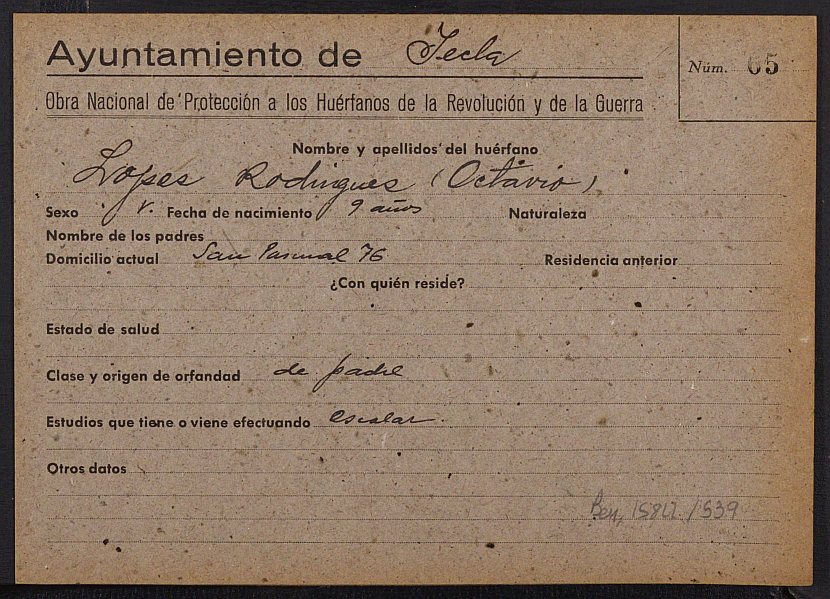 Ayuntamiento de Yecla
Núm. 65
Obra Nacional de Protección a los Huérfanos de la Revolución y de la Guerra
Nombre y apellidos del huérfano
Lopes Rodrigues (Octavio)
Sexo V. Fecha de nacimiento 9 años Naturaleza
Nombre de los padres
Domicilio actual San Pascual 76 Residencia anterior
¿Con quién reside?
Estado de salud
Clase y origen de orfandad de padre
Estudios que tiene o viene efectuando escolar.
Otros datos
Ben, /539